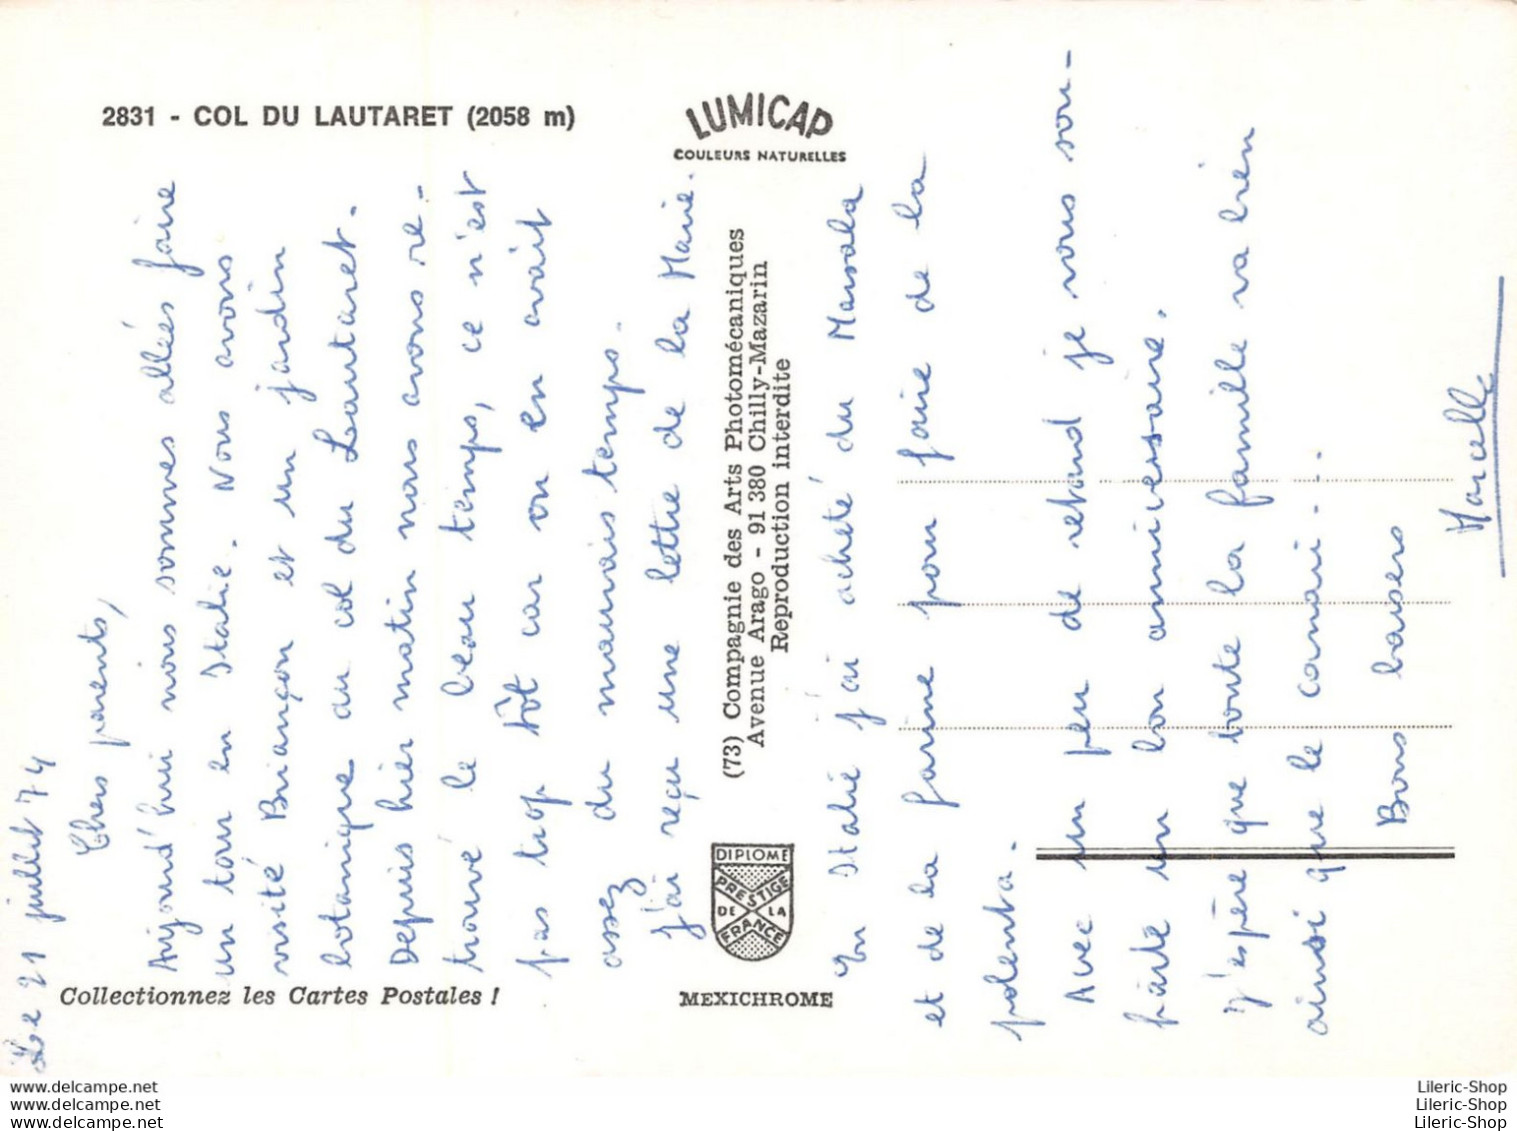 2831 - COL DU LAUTARET (2058 m)
LUMICAP
COULEURS NATURELLES
Le 21 juillet 74
Chers parents,
Aujourd'hui nous sommes allées faire
un tour en Italie. Nous avons
visité Briançon et un jardin
botanique au col du Lautaret.
Depuis hier matin nous avons re-
trouvé le beau temps, ce n'est
pas trop tôt car on en avait
assez du mauvais temps.
J'ai reçu une lettre de la Marie.
(73) Compagnie des Arts Photomécaniques
Avenue Arago - 91 380 Chilly-Mazarin
Reproduction interdite
DIPLOME
PRESTIGE
DE LA
FRANCE
MEXICHROME
Collectionnez les Cartes Postales !
En Italie j'ai acheté du Marsala
et de la farine pour faire de la
polenta.
Avec un peu de retard je vous sou-
haite un bon anniversaire.
J'espère que toute la famille va bien
ainsi que le canari..
Bons baisers
Marcelle
www.delcampe.net
www.delcampe.net
www.delcampe.net
Lileric-Shop
Lileric-Shop
Lileric-Shop